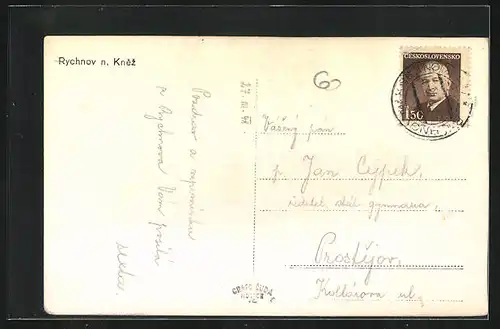 Rychnov n. Kněž
27. III. 47.
Pozdrav a vzpomínku
z Rychnova Vám posílá
6
ČESKOSLOVENSKO
1.50
Vážený pán
p. Jan Cypek,
ředitel stát. gymnasia,
Prostějov,
Kollárova ul.
GRAFO ČUDA
HOLICE